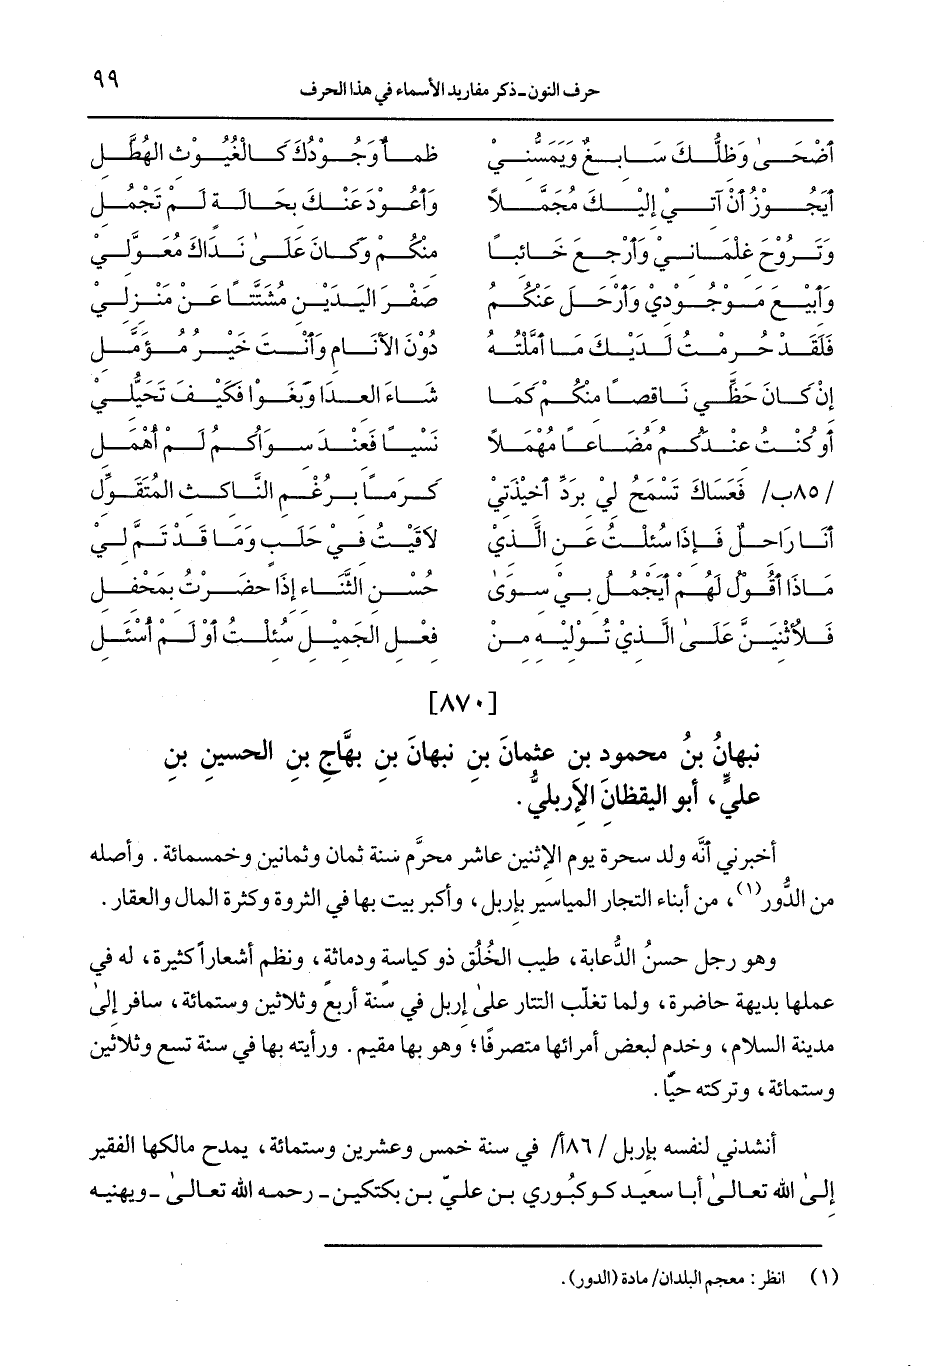 حرف النون ـ ذكر مفاريد الأسماء في هذا الحرف ٩٩
أَضْحَىٰ وَظِلُّكَ سَابِغٌ وَيَمَسُّنِي ظَمَأٌ وَجُودُكَ كَالْغُيُوثِ الهُطَّلِ
أَيَجُوزُ أَنْ آتِي إِلَيْكَ مُجَمَّلاً وَأَعُودَ عَنْكَ بِحَالَةٍ لَمْ تَجْمُلِ
وَتَرُوْحَ غِلْمَانِيْ وَأَرْجِعَ خَائِباً مِنْكُمْ وَكَانَ عَلَىٰ نَدَاكَ مُعَوَّلِيْ
وَأَبِيْعَ مَوْجُوْدِيْ وَأَرْحَلَ عَنْكُمُ صِفْرَ اليَدَيْنِ مُشَتَّتاً عَنْ مَنْزِلِيْ
فَلَقَدْ حُرِمْتُ لَدَيْكَ مَا أَمَّلْتُهُ دُوْنَ الأَنَامِ وَأَنْتَ خَيْرُ مُؤَمَّلِ
إِنْ كَانَ حَظِّي نَاقِصاً مِنْكُمْ كَمَا شَاءَ العِدَا وَبَغَوْا فَكَيْفَ تَحَيُّلِيْ
أَوْ كُنْتُ عِنْدَكُمُ مُضَاعاً مُهْمَلاً نَسْياً فَعِنْدَ سِوَاكُمُ لَمْ أُهْمَلِ
/٨٥ب/ فَعَسَاكَ تَسْمَحُ لِيْ بِرَدِّ أَخِيْذَتِيْ كَرَماً بِرُغْمِ النَّاكِثِ المُتَقَوِّلِ
أَنَا رَاحِلٌ فَإِذَا سُئِلْتُ عَنِ الَّذِيْ لاَقَيْتُ فِيْ حَلَبٍ وَمَا قَدْ تَمَّ لِيْ
مَاذَا أَقُوْلُ لَهُمْ أَيَجْمُلُ بِيْ سِوَىٰ حُسْنِ الثَّنَاءِ إِذَا حَضَرْتُ بِمَحْفِلِ
فَلأُثْنِيَنَّ عَلَىٰ الَّذِيْ تُوْلِيْهِ مِنْ فِعْلِ الجَمِيْلِ سُئِلْتُ أَوْ لَمْ أُسْئَلِ
[٨٧٠]
نبهانُ بنُ محمود بنِ عثمانَ بنِ نبهانَ بنِ بهَّاجِ بنِ الحسينِ بنِ
عليٍّ، أبو اليقظانِ الإربليُّ.
أخبرني أنَّه ولد سحرة يوم الإثنين عاشر محرَّم سنة ثمان وثمانين وخمسمائة. وأصله
من الدُّور(١)، من أبناء التجار المياسير بإربل، وأكبر بيت بها في الثروة وكثرة المال والعقار.
وهو رجل حسنُ الدُّعابة، طيب الخُلُق ذو كياسة ودماثة، ونظم أشعاراً كثيرة، له في
عملها بديهة حاضرة، ولما تغلّب التتار علىٰ إربل في سنة أربع وثلاثين وستمائة، سافر إلىٰ
مدينة السلام، وخدم لبعض أمرائها متصرفًا؛ وهو بها مقيم. ورأيته بها في سنة تسع وثلاثين
وستمائة، وتركته حيًّا.
أنشدني لنفسه بإربل /٨٦أ/ في سنة خمس وعشرين وستمائة، يمدح مالكها الفقير
إلىٰ الله تعالىٰ أبا سعيد كوكبُوري بن عليّ بن بكتكين ـ رحمه الله تعالىٰ ـ ويهنيه
(١) انظر: معجم البلدان/ مادة (الدور).